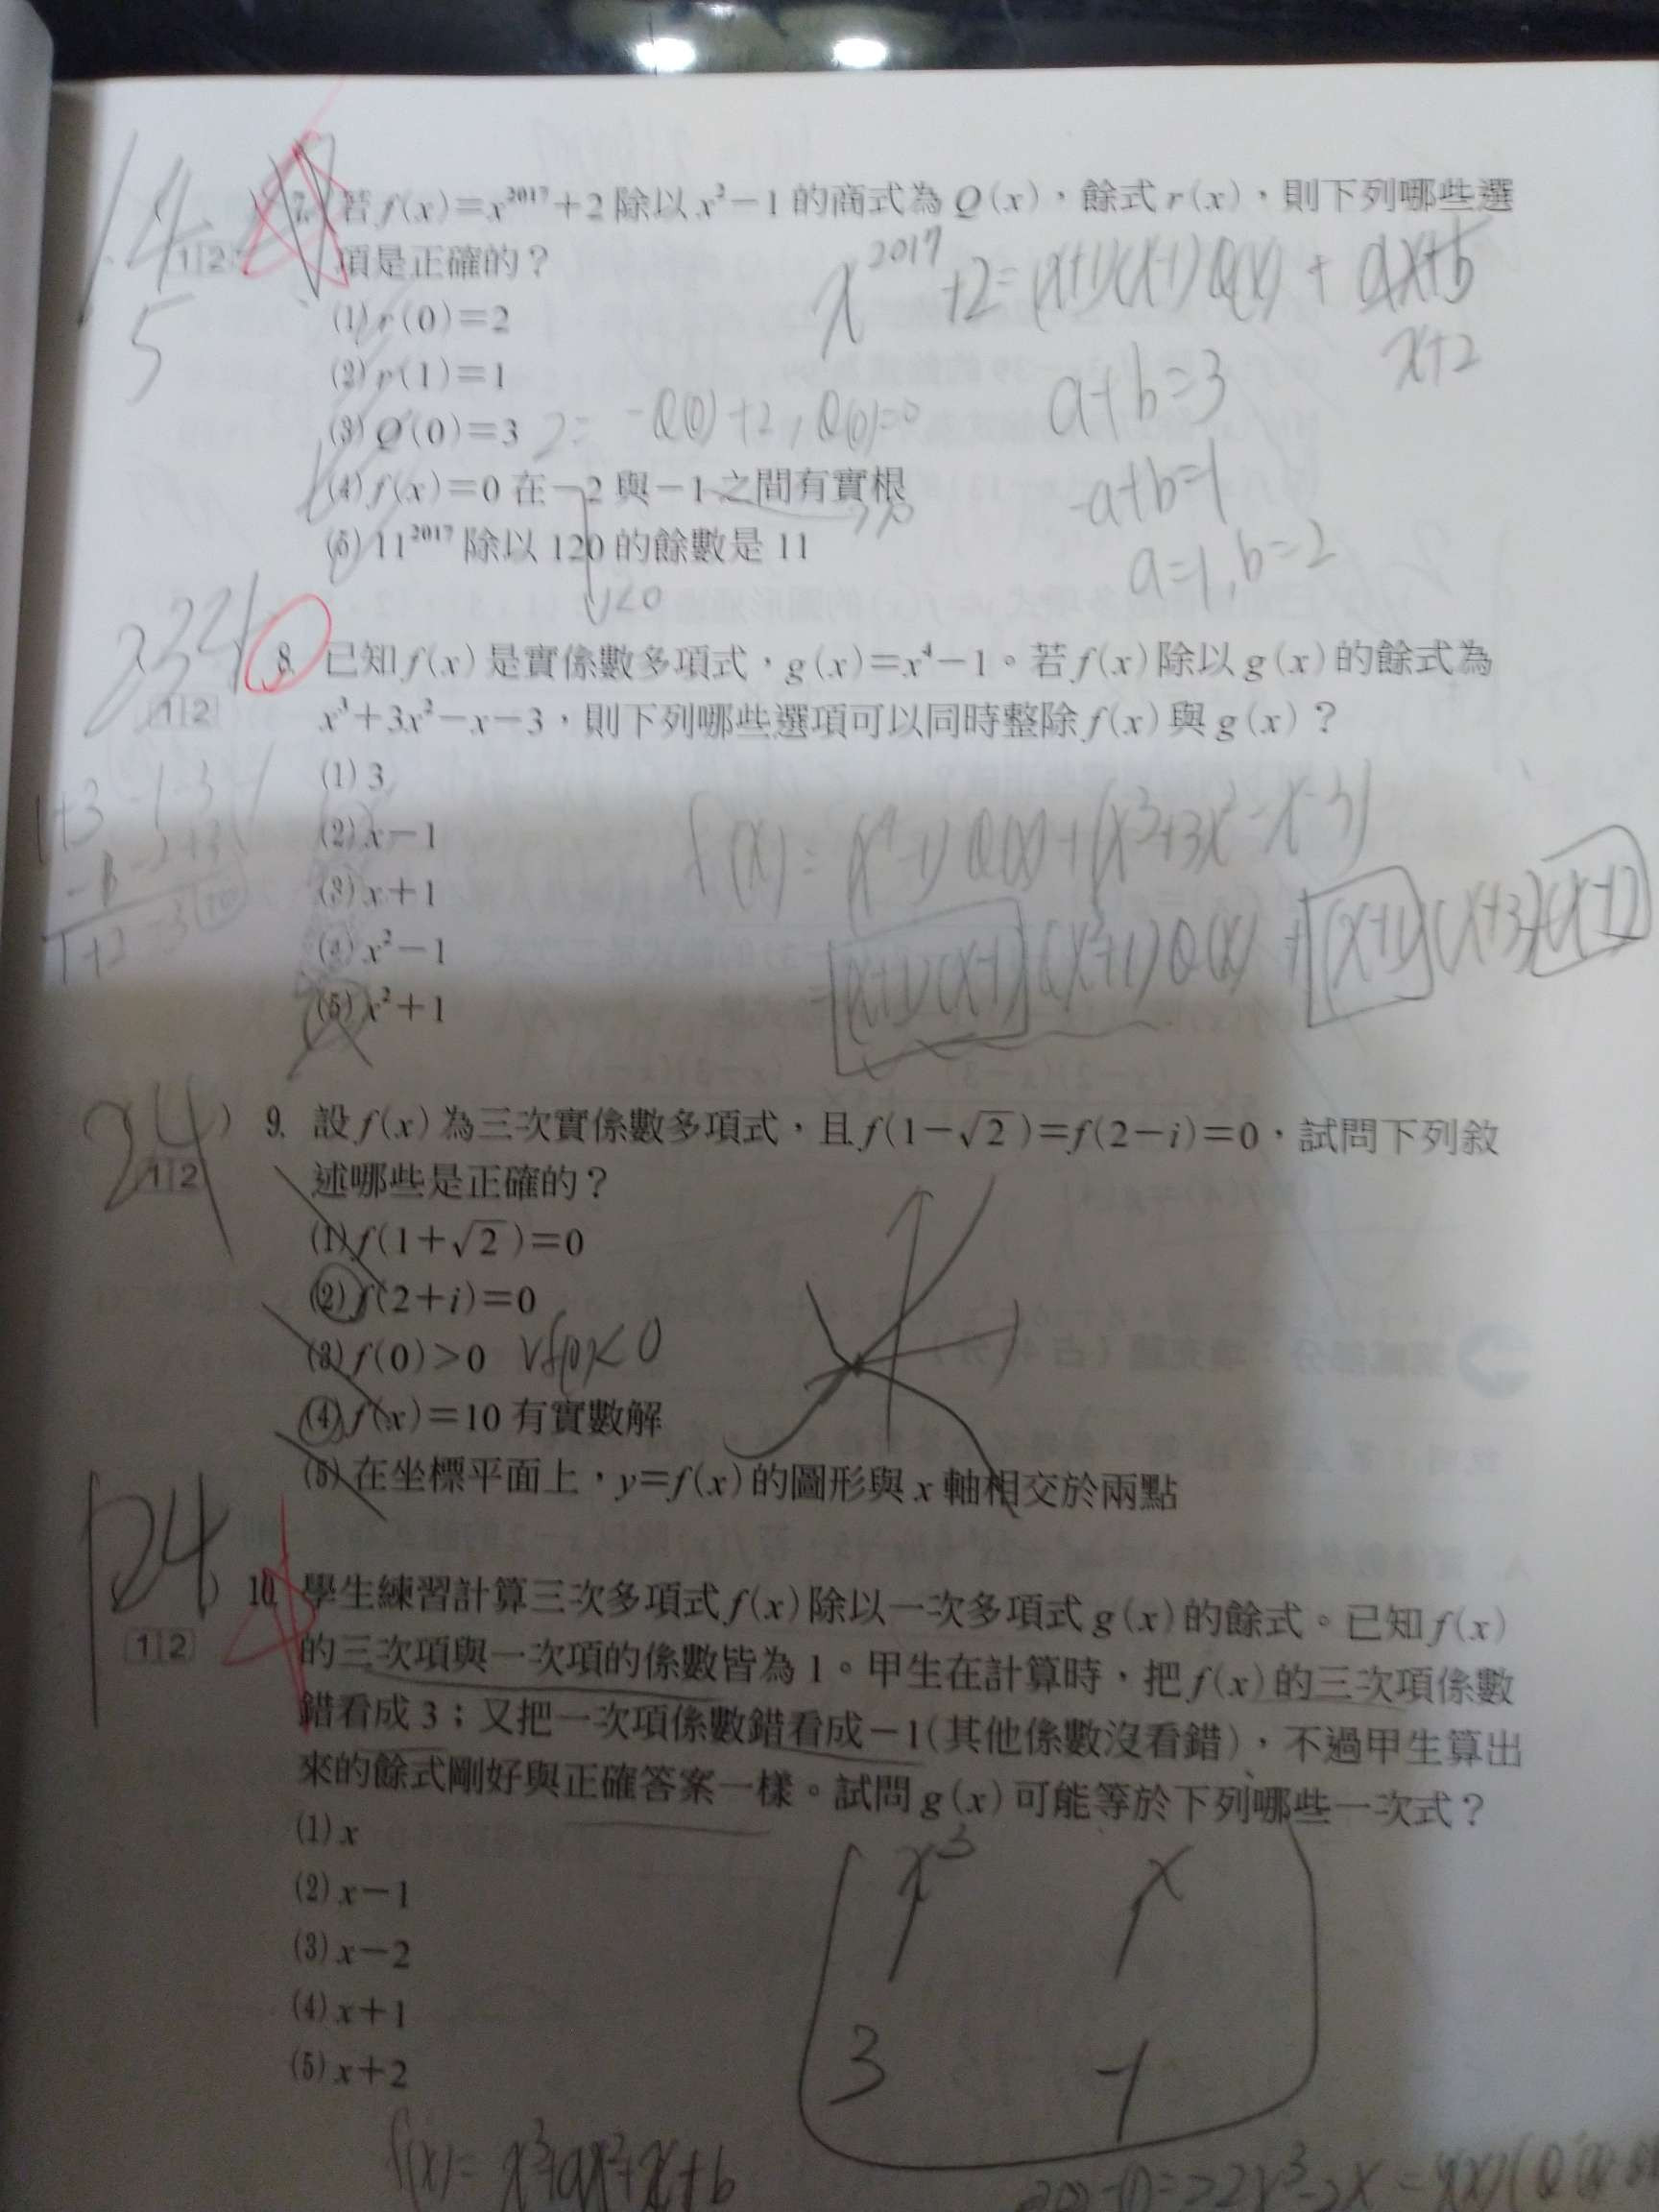 7. 若 f(x)=x²⁰¹⁷+2 除以 x²−1 的商式為 Q(x),餘式 r(x),則下列哪些選
1 2 項是正確的?
x²⁰¹⁷+2=(x+1)(x−1)Q(x)+ax+b
x+2
1.4
5
(1) r(0)=2
(2) r(1)=1
a+b=3
(3) Q(0)=3 2=−Q(0)+2, Q(0)=0
(4) f(x)=0 在−2 與−1 之間有實根
−a+b=1
(5) 11²⁰¹⁷ 除以 120 的餘數是 11
a=1, b=2
y<0
234
8. 已知 f(x) 是實係數多項式,g(x)=x⁴−1。若 f(x) 除以 g(x) 的餘式為
1 2 x³+3x²−x−3,則下列哪些選項可以同時整除 f(x) 與 g(x)?
(1) 3
(2) x−1
f(x)=(x⁴−1)Q(x)+(x³+3x²−x−3)
(3) x+1
(4) x²−1
=(x+1)(x−1)(x²+1)Q(x)+(x+1)(x+3)(x−1)
(5) x²+1
24
9. 設 f(x) 為三次實係數多項式,且 f(1−√2)=f(2−i)=0,試問下列敘
1 2 述哪些是正確的?
(1) f(1+√2)=0
(2) f(2+i)=0
(3) f(0)>0 f(0)<0
(4) f(x)=10 有實數解
(5) 在坐標平面上,y=f(x) 的圖形與 x 軸相交於兩點
124
10. 學生練習計算三次多項式 f(x) 除以一次多項式 g(x) 的餘式。已知 f(x)
1 2 的三次項與一次項的係數皆為 1。甲生在計算時,把 f(x) 的三次項係數
錯看成 3;又把一次項係數錯看成−1(其他係數沒看錯),不過甲生算出
來的餘式剛好與正確答案一樣。試問 g(x) 可能等於下列哪些一次式?
(1) x
(2) x−1
(3) x−2
(4) x+1
(5) x+2
x³ x
1 1
3 −1
f(x)=x³+ax²+x+b